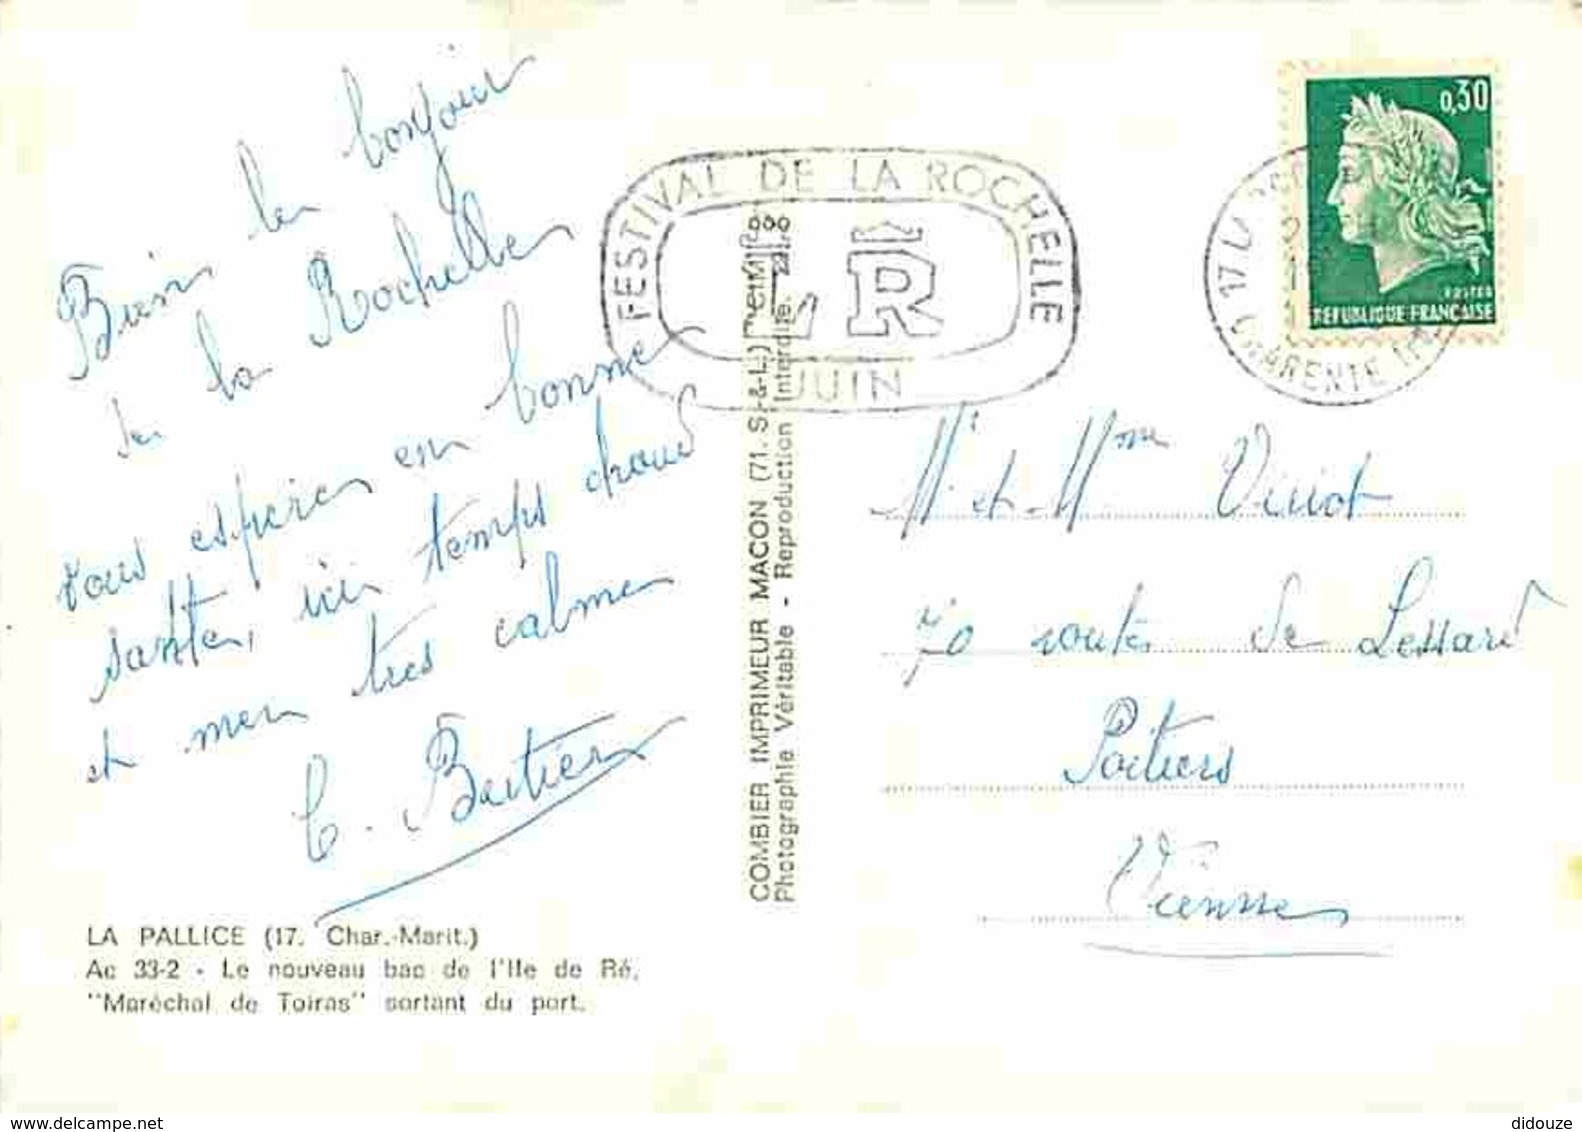 Bien le bonjour
de la Rochelle
vous espère en bonne
santé, ici temps chaud
et mer très calme
C. Bertier
LA PALLICE (17. Char.-Marit.)
Ac 33-2 - Le nouveau bac de l'Ile de Ré,
"Maréchal de Toiras" sortant du port.
COMBIER IMPRIMEUR MACON (71. S.-&-L.) "CIM"
Photographie Véritable - Reproduction Interdite.
FESTIVAL DE LA ROCHELLE
LR
JUIN
0,30
POSTES
REPUBLIQUE FRANÇAISE
17
CHARENTE
Mr et Mme
70 route de Lessard
Poitiers
Vienne
didouze